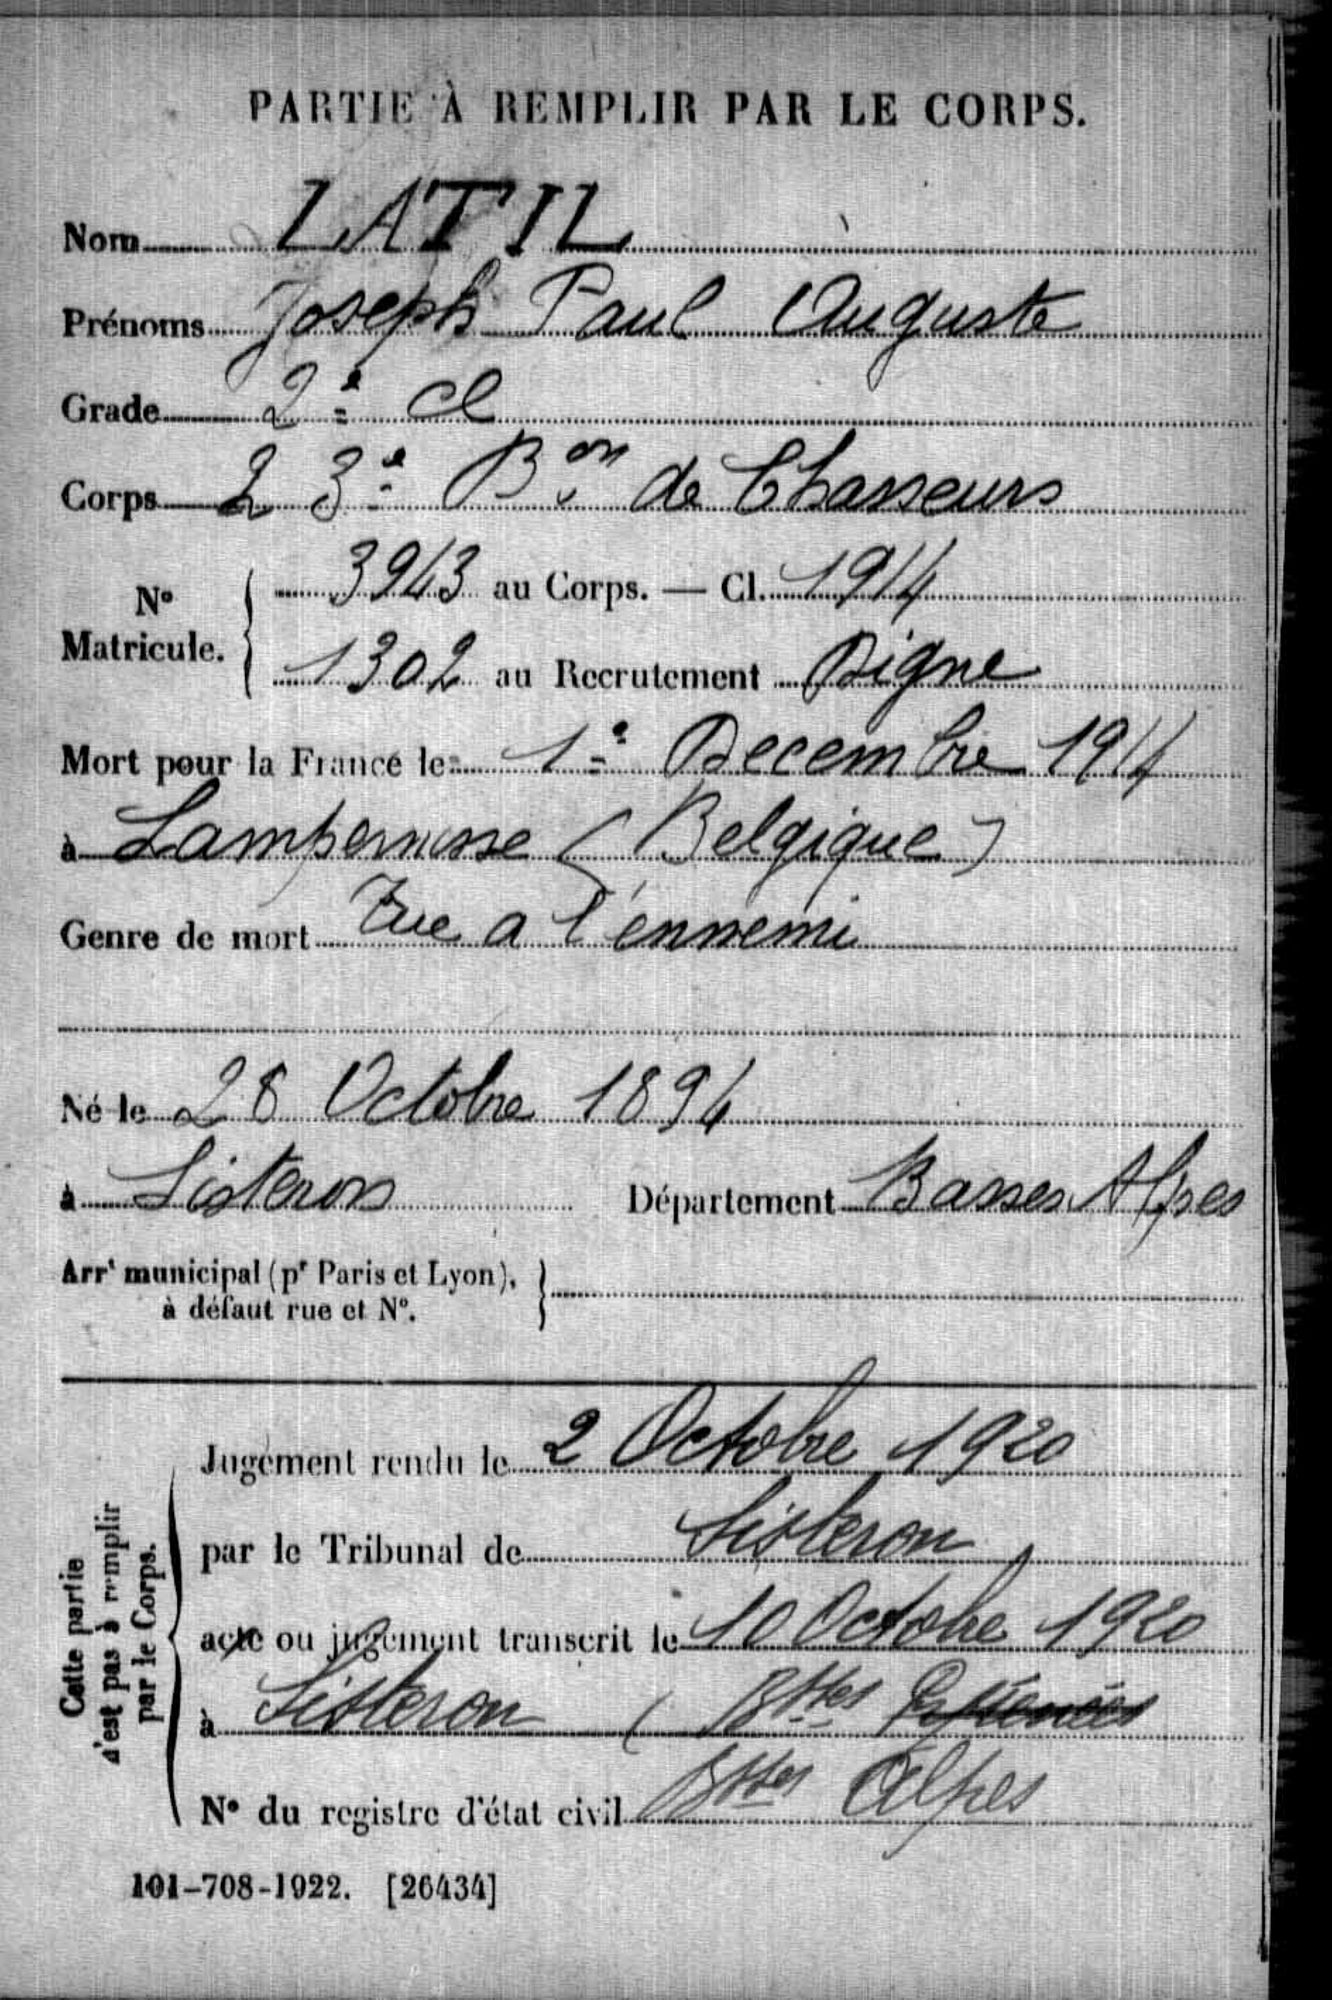 PARTIE À REMPLIR PAR LE CORPS.
Nom LATIL
Prénoms Joseph Paul Auguste
Grade 2e cl
Corps 23e Bon de Chasseurs
No Matricule. 3943 au Corps. — Cl. 1914
1302 au Recrutement Digne
Mort pour la France le 1e Decembre 1914
à Lampernisse (Belgique)
Genre de mort Tue a l'ennemi
Né le 28 Octobre 1894
à Sisteron Département Basses Alpes
Arrt municipal (pr Paris et Lyon),
à défaut rue et No.
Cette partie
n'est pas à remplir
par le Corps.
Jugement rendu le 2 Octobre 1920
par le Tribunal de Sisteron
acte ou jugement transcrit le 10 Octobre 1920
à Sisteron ( Bsses
No du registre d'état civil Bsses Alpes
101-708-1922. [26434]